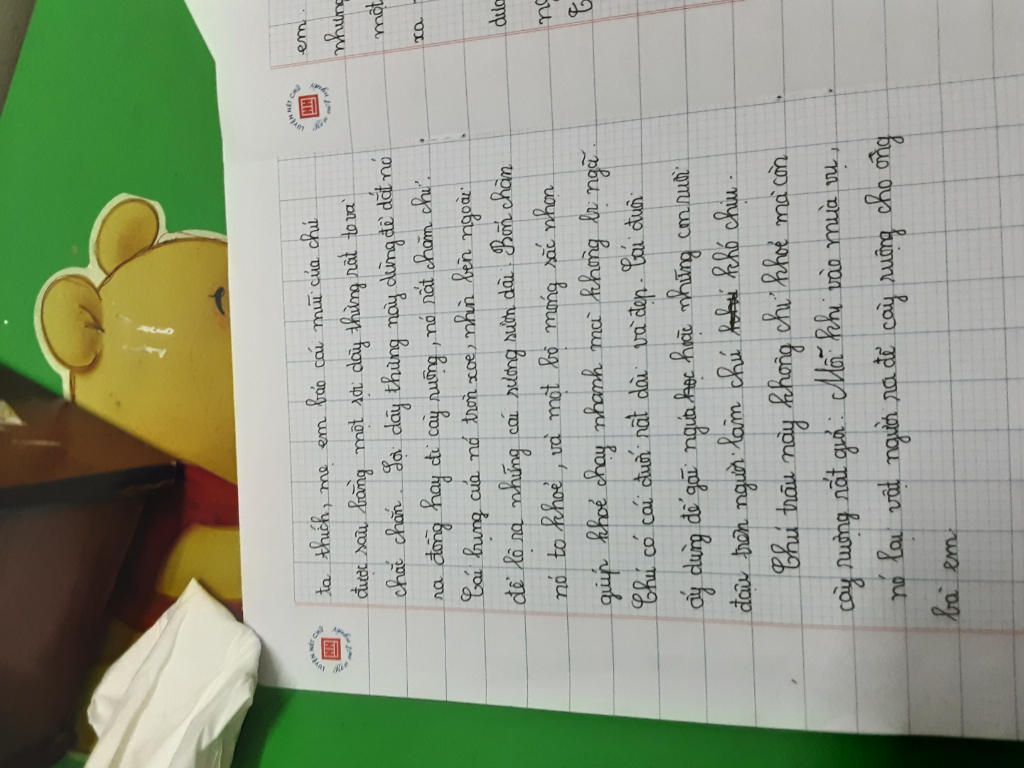 ta thích, mẹ em bảo cái mũi của chú
được xâu bằng một sợi dây thừng rất to và
chắc chắn. Sợi dây thừng này dùng để dắt nó
ra đồng hay đi cày ruộng, nó rất chăm chỉ.
Cái bụng của nó tròn xoe, nhìn bên ngoài
để lộ ra những cái xương sườn dài. Bốn chân
nó to khoẻ, và một bộ móng sắc nhọn
giúp khoẻ chạy nhanh mà không bị ngã.
Chú có cái đuôi rất dài và đẹp. Cái đuôi
ấy dùng để gãi ngứa hoặc những con ruồi
đậu trên người làm chú khó chịu.
Chú trâu này không chỉ khoẻ mà còn
cày ruộng rất giỏi. Mỗi khi vào mùa vụ,
nó lại vật người ra để cày ruộng cho ông
bà em.
em.
nhưng
một
xa
LUYỆN NÉT CHỮ
NH
LUYỆN NÉT CHỮ
NH